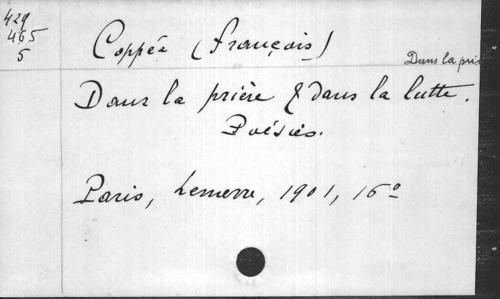 429
465
5
Coppée (François)
Dans la pri
Dans la prière & dans la lutte.
Poésies.
Paris, Lemerre, 1901, 16º